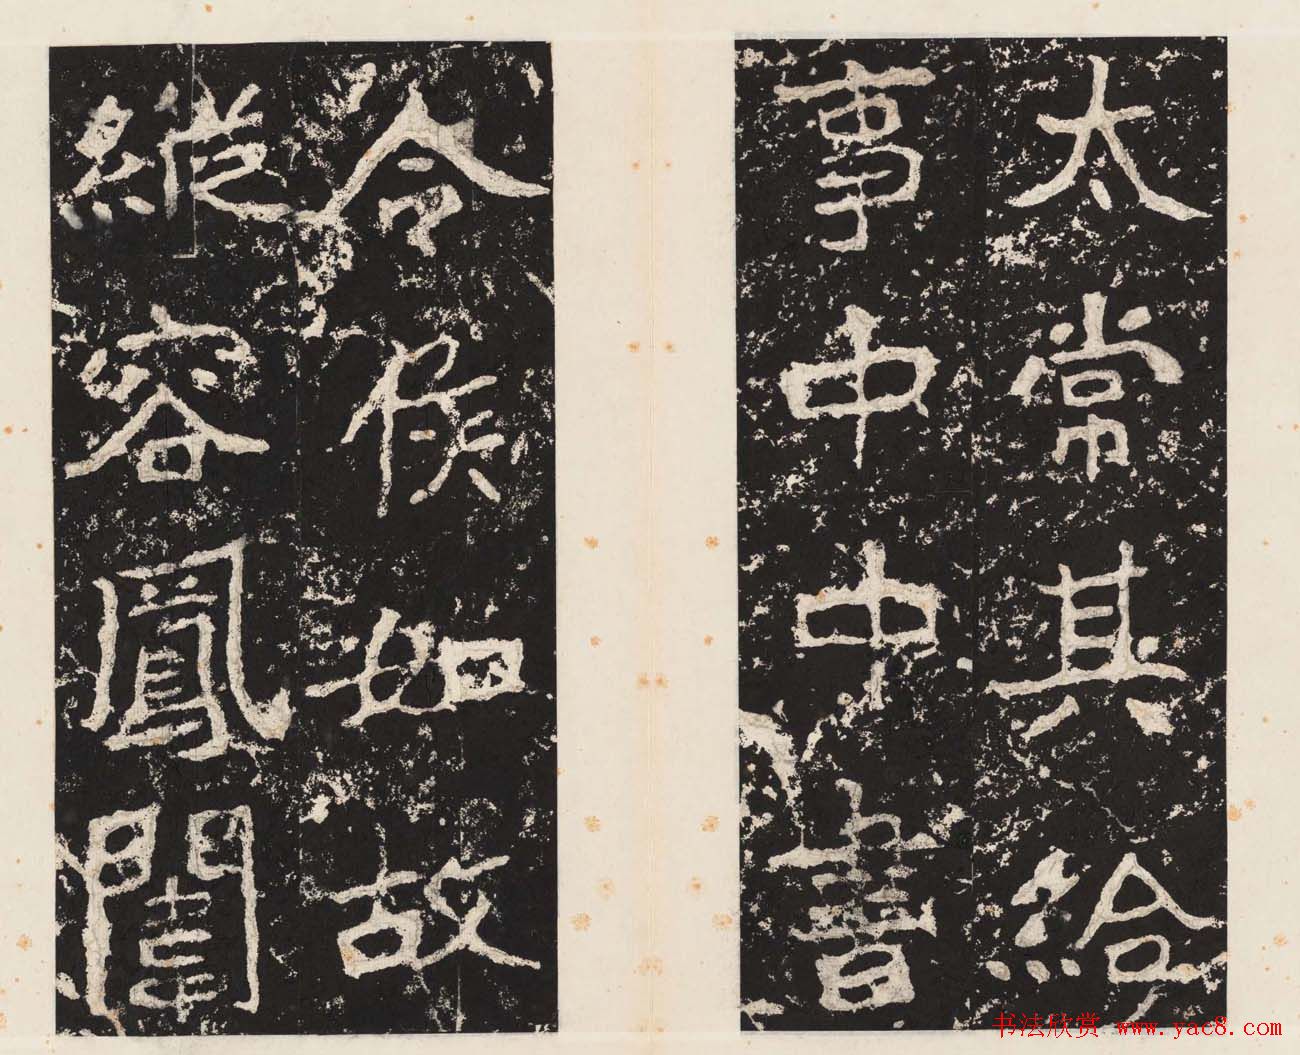 太常其給
事中中書
令侯如故
縱容鳳闈
书法欣赏 www.yac8.com